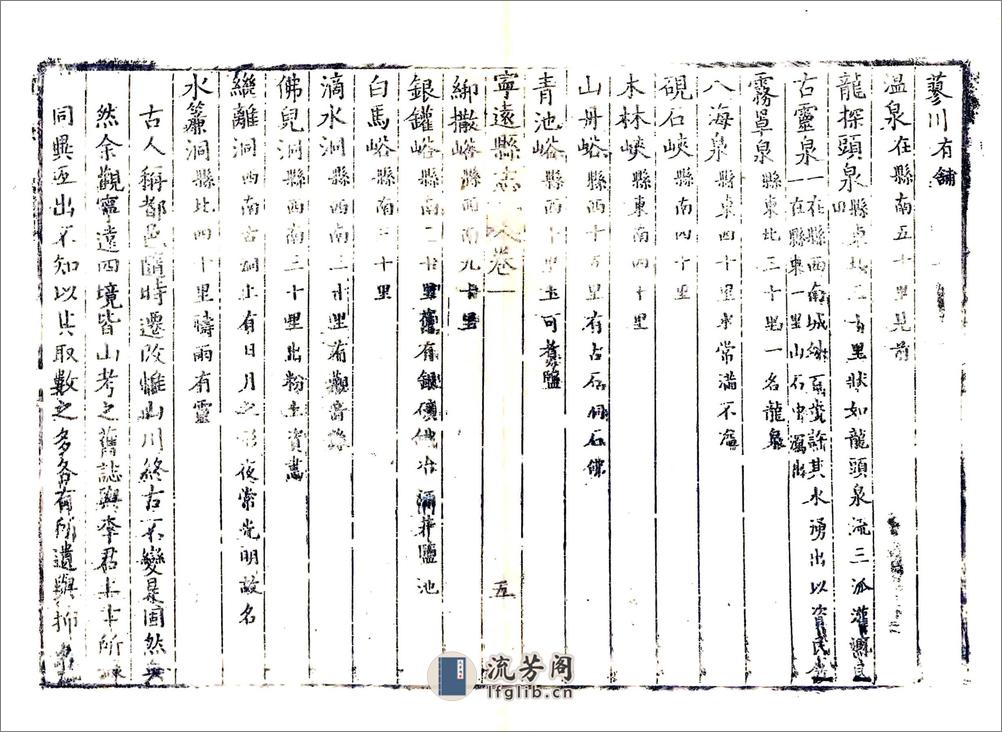 蓼川有舖
溫泉在縣南五十里見前
龍探頭泉縣東北二十里狀如龍頭泉流三派灌溉
古靈泉一在縣西南城外百步許其水湧出以資民
一在縣東一里山石中湧出
霧罩泉縣東北三十里一名龍泉
八海泉縣東四十里水常滿不溢
硯石峽縣南四十里
木林峽縣東南四十里
山丹峪縣西十五里有占石洞石佛
青池峪縣西十里土可煮鹽
寧遠縣志 卷一 五
綁撒峪縣西南九十里
銀鑵峪縣南二十里舊有銀礦鐵冶 鹽池
白馬峪縣南三十里
滴水洞縣西南二十里有觀音
佛兒洞縣西南三十里出粉土資畫
纔離洞西南古洞上有日月之形夜常光明故名
水簾洞縣北四十里禱雨有靈
古人稱都邑隨時遷改惟山川終古不變是固然矣
然余觀寧遠四境皆山考之舊誌與李君 所
同異互出不知以其取數之多各有所遺與抑
流芳阁
lfglib.cn